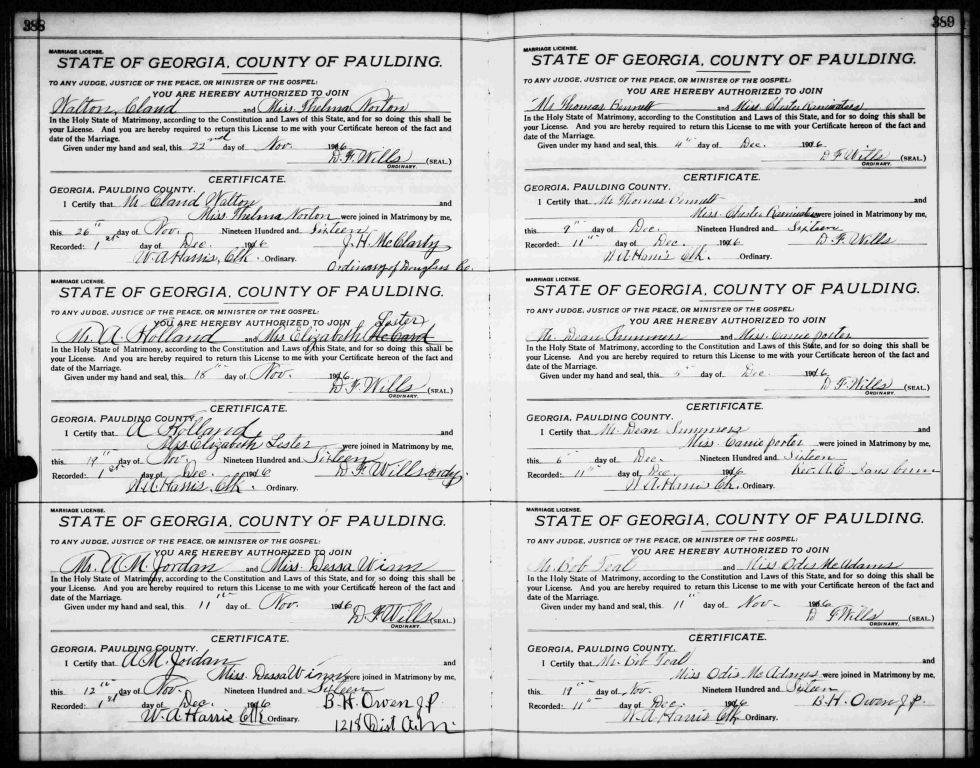 388
MARRIAGE LICENSE.
STATE OF GEORGIA, COUNTY OF PAULDING.
TO ANY JUDGE, JUSTICE OF THE PEACE, OR MINISTER OF THE GOSPEL:
YOU ARE HEREBY AUTHORIZED TO JOIN
Walton, Cland and Miss Thelma Norton
In the Holy State of Matrimony, according to the Constitution and Laws of this State, and for so doing this shall be
your License. And you are hereby required to return this License to me with your Certificate hereon of the fact and
date of the Marriage.
Given under my hand and seal, this 22nd day of Nov. 1916
D. F. Wills (SEAL.)
ORDINARY.
CERTIFICATE.
GEORGIA, PAULDING COUNTY.
I Certify that Mr Cland Walton and
Miss Thelma Norton were joined in Matrimony by me,
this 26" day of Nov. Nineteen Hundred and Sixteen
Recorded: 1st day of Dec. 1916 J. H. McClarty
W. A. Harris, Clk. Ordinary. Ordinary of Douglas Co.
MARRIAGE LICENSE.
STATE OF GEORGIA, COUNTY OF PAULDING.
TO ANY JUDGE, JUSTICE OF THE PEACE, OR MINISTER OF THE GOSPEL:
YOU ARE HEREBY AUTHORIZED TO JOIN Lester
Mr. A. Holland and Mrs Elizabeth
In the Holy State of Matrimony, according to the Constitution and Laws of this State, and for so doing this shall be
your License. And you are hereby required to return this License to me with your Certificate hereon of the fact and
date of the Marriage.
Given under my hand and seal, this 18" day of Nov. 1916
D. F. Wills (SEAL.)
ORDINARY.
CERTIFICATE.
GEORGIA, PAULDING COUNTY.
I Certify that A Holland and
Mrs Elizabeth Lester were joined in Matrimony by me,
this 19" day of Nov. Nineteen Hundred and Sixteen
Recorded: 1st day of Dec. 1916 D. F. Wills ordy.
W. A. Harris, Clk. Ordinary.
MARRIAGE LICENSE.
STATE OF GEORGIA, COUNTY OF PAULDING.
TO ANY JUDGE, JUSTICE OF THE PEACE, OR MINISTER OF THE GOSPEL:
YOU ARE HEREBY AUTHORIZED TO JOIN
Mr. A. M. Jordan and Miss. Dessa Winn
In the Holy State of Matrimony, according to the Constitution and Laws of this State, and for so doing this shall be
your License. And you are hereby required to return this License to me with your Certificate hereon of the fact and
date of the Marriage.
Given under my hand and seal, this 11" day of Nov. 1916
D. F. Wills (SEAL.)
ORDINARY.
CERTIFICATE.
GEORGIA, PAULDING COUNTY.
I Certify that A. M. Jordan and
Miss. Dessa Winn were joined in Matrimony by me,
this 12" day of Nov. Nineteen Hundred and Sixteen
Recorded: 1st day of Dec. 1916 B. H. Owen J P
W. A. Harris Clk Ordinary. 1218 Dist G.M.
389
MARRIAGE LICENSE.
STATE OF GEORGIA, COUNTY OF PAULDING.
TO ANY JUDGE, JUSTICE OF THE PEACE, OR MINISTER OF THE GOSPEL:
YOU ARE HEREBY AUTHORIZED TO JOIN
Mr Thomas Bennett and Miss. Chester
In the Holy State of Matrimony, according to the Constitution and Laws of this State, and for so doing this shall be
your License. And you are hereby required to return this License to me with your Certificate hereon of the fact and
date of the Marriage.
Given under my hand and seal, this 4" day of Dec. 1916.
D. F. Wills (SEAL.)
ORDINARY.
CERTIFICATE.
GEORGIA, PAULDING COUNTY.
I Certify that Mr Thomas Bennett and
Miss. Chester were joined in Matrimony by me,
this 9" day of Dec. Nineteen Hundred and Sixteen
Recorded: 11" day of Dec. 1916 D. F. Wills
W. A. Harris Clk. Ordinary.
MARRIAGE LICENSE.
STATE OF GEORGIA, COUNTY OF PAULDING.
TO ANY JUDGE, JUSTICE OF THE PEACE, OR MINISTER OF THE GOSPEL:
YOU ARE HEREBY AUTHORIZED TO JOIN
Mr. Dean Summers and Miss. Canie porter
In the Holy State of Matrimony, according to the Constitution and Laws of this State, and for so doing this shall be
your License. And you are hereby required to return this License to me with your Certificate hereon of the fact and
date of the Marriage.
Given under my hand and seal, this 5" day of Dec 1916.
D. F. Wills (SEAL.)
ORDINARY.
CERTIFICATE.
GEORGIA, PAULDING COUNTY.
I Certify that Mr. Dean Summers and
Miss. Canie porter were joined in Matrimony by me,
this 6" day of Dec. Nineteen Hundred and Sixteen
Recorded: 11" day of Dec. 1916 Rev. A. C.
W. A. Harris Clk. Ordinary.
MARRIAGE LICENSE.
STATE OF GEORGIA, COUNTY OF PAULDING.
TO ANY JUDGE, JUSTICE OF THE PEACE, OR MINISTER OF THE GOSPEL:
YOU ARE HEREBY AUTHORIZED TO JOIN
Mr. Bob Teal and Miss Odis McAdams
In the Holy State of Matrimony, according to the Constitution and Laws of this State, and for so doing this shall be
your License. And you are hereby required to return this License to me with your Certificate hereon of the fact and
date of the Marriage.
Given under my hand and seal, this 11" day of Nov. 1916
D. F. Wills (SEAL.)
ORDINARY.
CERTIFICATE.
GEORGIA, PAULDING COUNTY.
I Certify that Mr. Bob Teal and
Miss Odis McAdams were joined in Matrimony by me,
this 19" day of Nov. Nineteen Hundred and Sixteen
Recorded: 11" day of Dec. 1916 B. H. Owen J. P.
W. A. Harris Clk Ordinary.